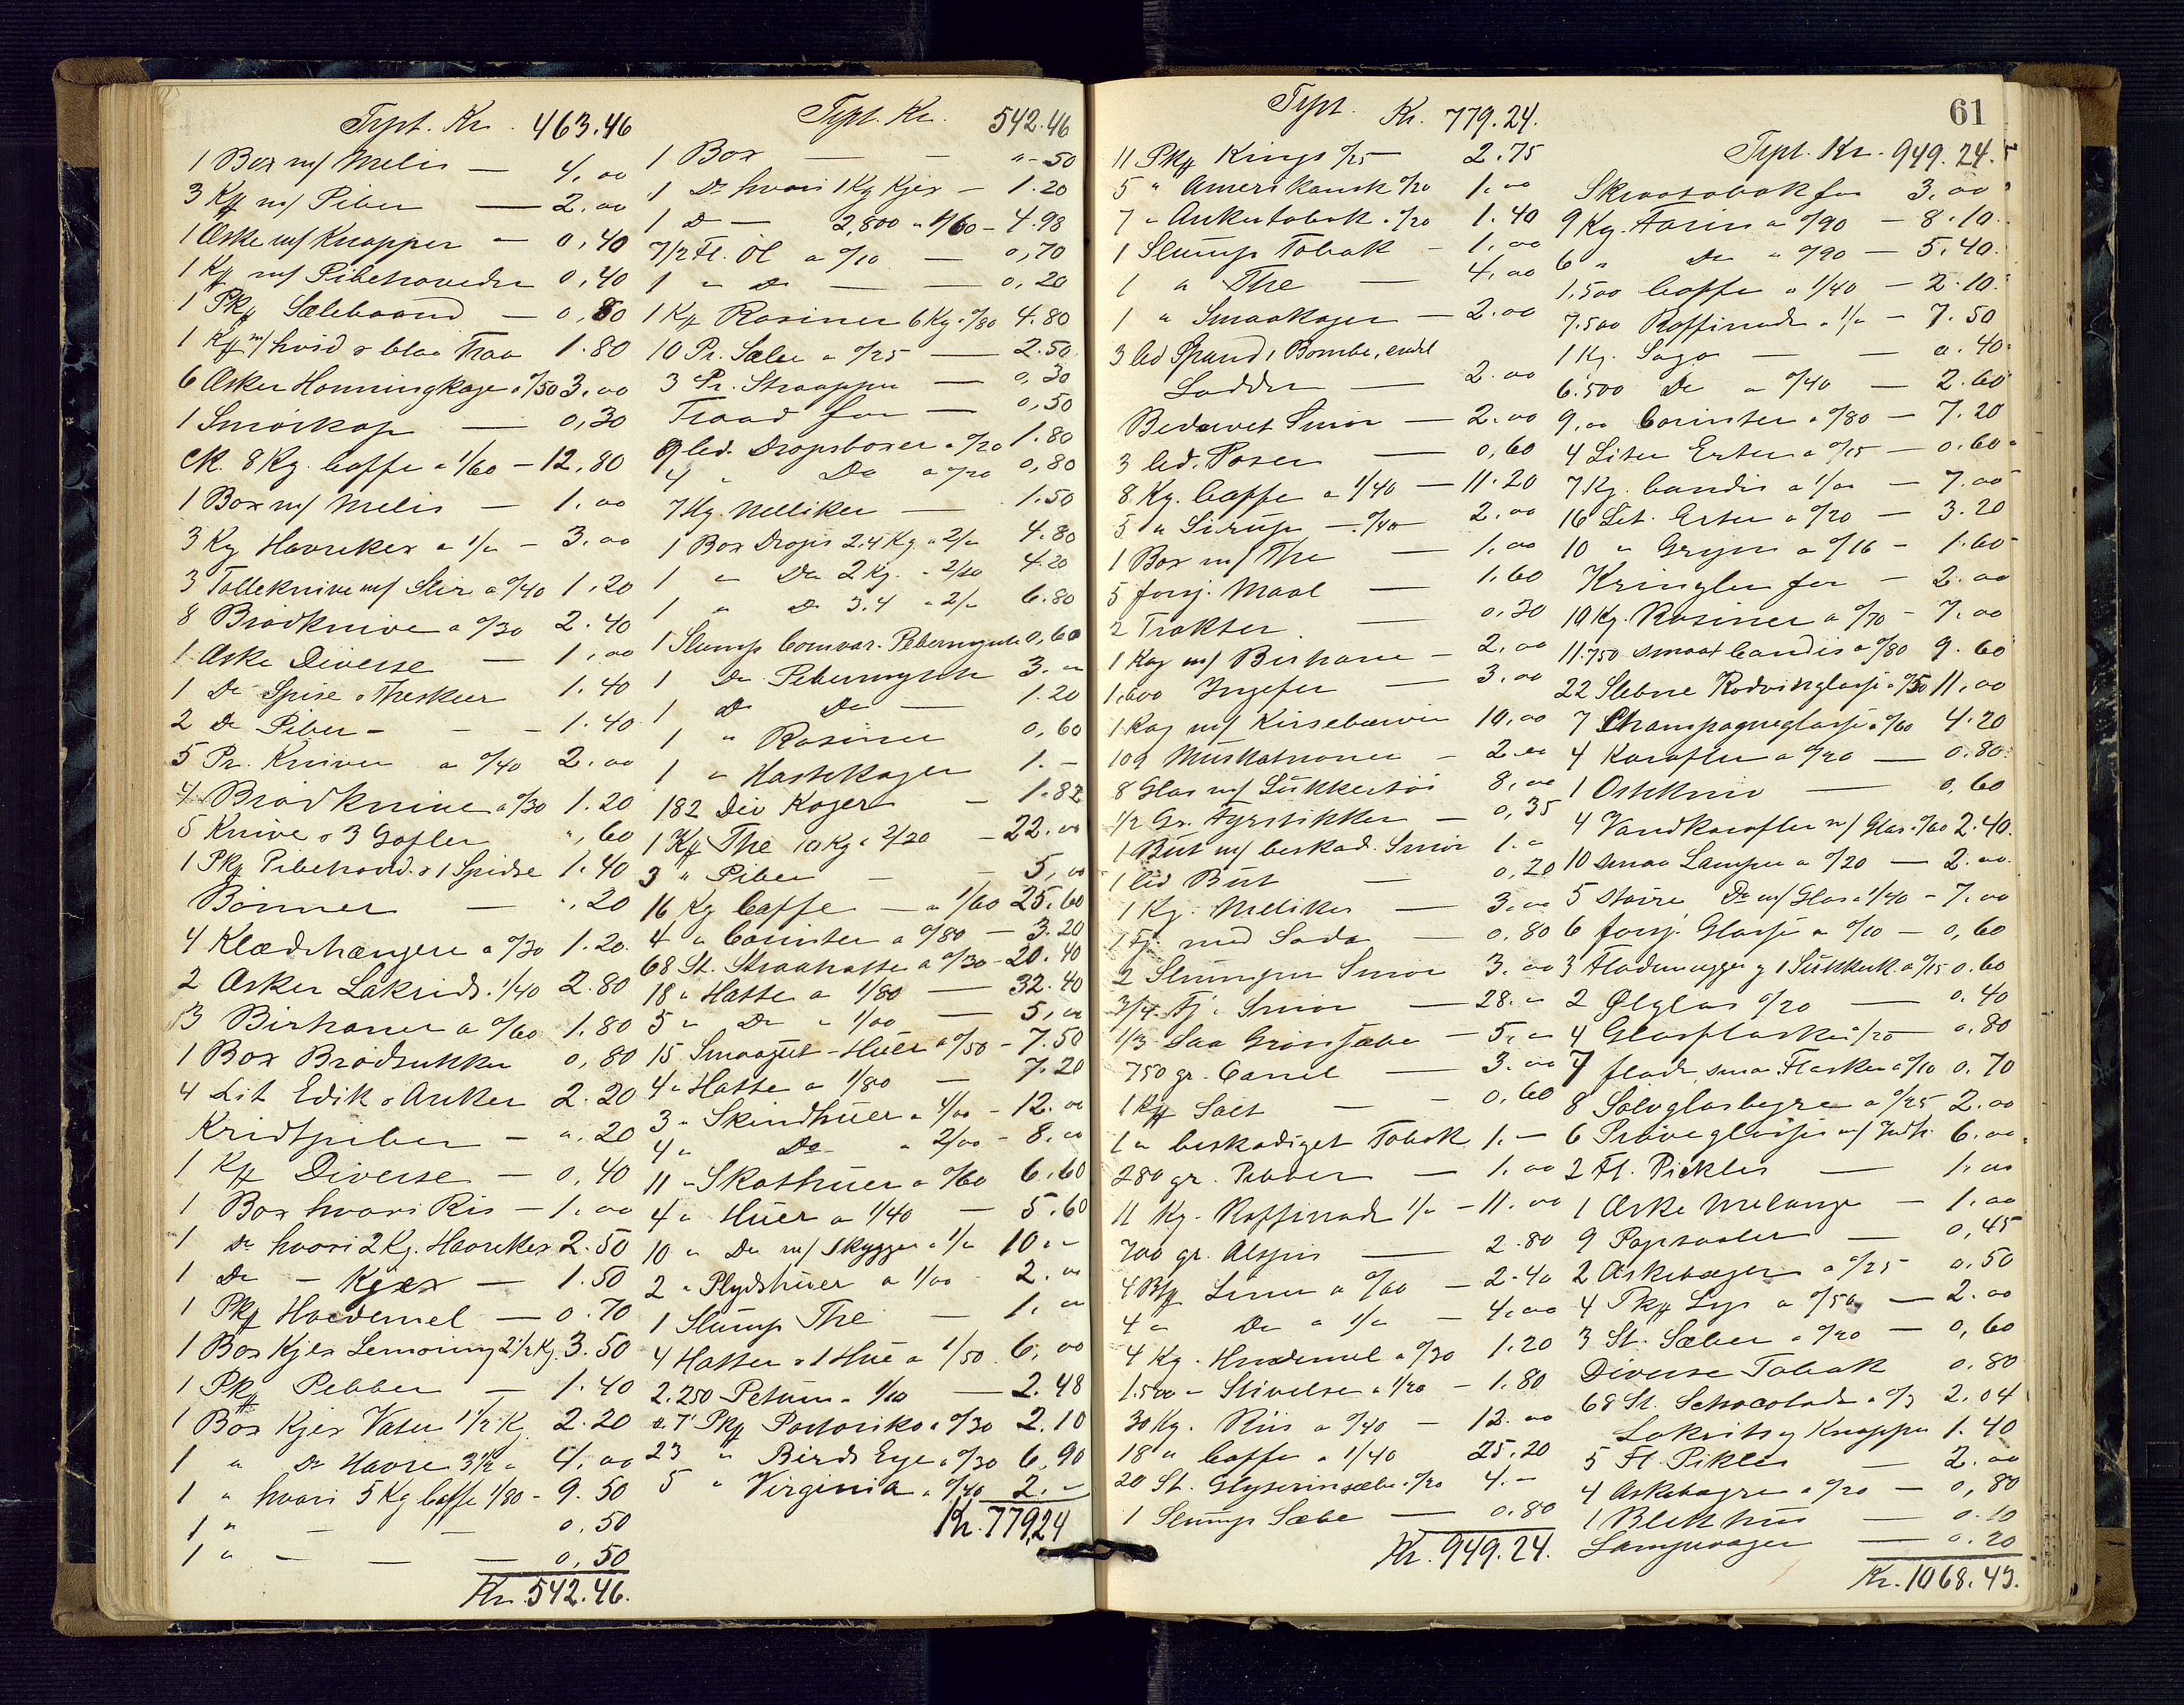 Trpt. Kr. 463.46
1 Box m/ Melis — 4,00
3 Kff m/ Piber — 2.00
1 Æske m/ Knapper — 0,40
1 Kff m/ Pibehoveder 0,40
1 Pkff Sælebaand — 0,80
1 Kff m/ hvid & blaa Traa 1.80
6 Æsker Honningkage a %50 3.00
1 Smörkop — 0,30
ck. 8 Kg. Caffe a 1/60 — 12,80
1 Box m/ Melis — 1,00
3 Kg Havrekex a 1/" — 3.00
3 Tolleknive m/ Slir a %40 1.20
8 Brödknive a %30 2.40
1 Æske Diverse — 1,00
1 Do Spise & Theskeer 1.40
2 Do Piber - - - 1.40
5 Pr. Kniver a %40 2.00
4 Brödknive a %30 1.20
5 Knive & 3 Gafler ",60
1 Pkff Pibehoved. & 1 Spidse 1.40
Bönner — ".20
4 Klædehængere a %30 1.20
2 Æsker Lakrids. 1/40 2.80
3 Birhaner a %60 1.80
1 Box Brödsukker 0,80
4 Lit Edik & Anker 2.20
Kridtpiber — ".20
1 Kff Diverse — 0,40
1 Box hvori Ris — 1.00
1 Do hvori 2 Kg. Havrekex 2.50
1 Do — Kjex — 1.50
1 Pkff Hvedemel — 0.70
1 Box Kjex Lemoning 2 1/2 Kg. 3.50
1 Pkff Pebber — 1.40
1 Box Kjex Vater 1 1/2 Kg. 2.20
1 " Do Havre 3 1/2 " 4.00
1 " hvori 5 Kg Caffe 1/80 - 9.50
1 " — — 0.50
1 " — — — 0,50
Kr. 542.46.
Trpt. Kr. 542.46
1 Box — — "-50
1 Do hvori 1 Kg Kjex — 1.20
1 Do — 2,800 " 1/60 - 4.98
7/2 Fl. Öl a %10 — 0,70
1 " Do — — 0,20
1 Kff Rosiner 6 Kg. %80 4.80
10 Pr. Sæler a %25 — 2.50
3 Pr. Stropper — 0,30
Traad for — 0,50
9 led. Dropsboxer a %20 1.80
4 " Do a %20 0,80
7 Kg. Nelliker — 1.50
1 Box Drops 2.4 Kg a 2/" 4.80
1 " Do 2 Kg. " 2/20 4.20
1 " Do 3.4 " 2/" 6.80
1 Slump Pebermynte 0,60
1 Do Pebermynte 3."
1 Do Do — 1.20
1 " Rosiner 0,60
1 " Hastekager 1.-
182 Div Kager — 1.82
1 Kff The 10 Kg a 2/20 - 22.00
3 " Piber — 5,00
16 Kg Caffe — a 1/60 25.60
4 " Corinter a %80 — 3.20
68 St. Straahatte a %30 - 20.40
18 " Hatte a 1/80 — 32.40
5 " Do " 1/00 — 5,00
15 Smaagut-Huer a %50 - 7.50
4 " Hatte a 1/80 — 7.20
3 " Skindhuer a 4/00 - 12.00
4 " Do " 2/00 - 8.00
11 " Skothuer a %60 6,60
4 " Huer a 1/40 — 5.60
10 " Do m/ Skygge a 1/" 10.-
2 " Plydshuer a 1/00 2.00
1 Slump The — 1.00
4 Hatter & 1 Hue a 1/50 6,00
2.250 Petum a 1/10 — 2.48
7 Pkff Portoriko a %30 2.10
23 " Birds Eye a %30 6,90
5 " Virginia a %40 2.-
Kr. 779,24
61
Trpt. Kr. 779.24.
11 Pkff Kings %25 2.75
5 " Amerikansk %20 1.00
7 " Ankertobak a %20 1.40
1 Slump Tobak - 1.00
1 " The — 4,00
1 " Smaakager — 2.00
3 led Spand, 1 Bombe, endel
Lodder — 2.00
Bedærvet Smör — 2.00
3 led. Poser — 0,60
8 Kg. Caffe a 1/40 — 11.20
5 " Sirup — %40 2.00
1 Box m/ The — 1,00
5 forsj. Maal — 1.60
2 Trakter — 0.30
1 Kag m/ Birhane — 2,00
1,600 Ingefer — 3.00
1 Kag m/ Kirsebærvin 10,00
109 Muskatnoner — 2.00
8 Glas m/ Sukkertöi 8,00
1/2 Gr. Fyrstikker — 0,35
1 Büt m/ beskad. Smör 1."
1 led Büt — 0,20
1 Kg. Nelliker — 3.00
1 Fj. med Soda — 0.80
2 Slumper Smör 3.00
3/4 Fj. Smör — 28."
1/3 Saa Grönsæbe — 5,"
750 gr. Canel — 3.00
1 Kff Salt — - 0,60
1 " beskadiget Tobak 1.—
280 gr. Pebber — 1.00
11 Kg. Raffinade 1/" - 11.00
700 gr. Alspis — 2.80
4 Bkff Linn a %60 - 2.40
4 " Do a 1/" - 4,00
4 Kg. Hvedemel a %30 1.20
1.500 " Stivelse a 1/20 - 1.80
30 Kg. Riis a %40 - 12.00
18 " Caffe a 1/40 25.20
20 St. Glyserinsæbe %20 4.-
1 Slump Sæbe — 0.80
Kr. 949.24.
Trpt. Kr. 949.24.
Skraatobak for 3,00
9 Kg. Farin a %90 — 8.10
6 " Do " %90 — 5.40
1,500 Caffe a 1/40 — 2.10
7.500 Raffinade a 1/" — 7.50
1 Kg. Sago — — 0.40
6.500 Do a %40 — 2.60
9,00 Corinter a %80 — 7.20
4 Liter Erter a %15 — 0.60
7 Kg. Candis a 1/00 — 7.00
16 Lit. Erter a %20 — 3.20
10 " Gryn a %16 - 1.60
Kringler for — 2.00
10 Kg. Rosiner a %70 - 7.00
11.750 smaat Candis a %80 9.60
22 Slebne Rödvinglasse a %50 11.00
7 Champagneglasse a %60 4.20
4 Karafler a %20 — 0.80
1 Ostekniv — 0,60
4 Vandkarafler m/ Glas a %60 2.40
10 smaa Lamper a %20 — 2.00
5 större Do m/ Glas a 1/40 - 7.00
6 forsj. Glasse a %10 — 0,60
3 Flödemugger og 1 Sukkerk. a %15 0.60
2 Ølglas %20 — 0.40
4 Glasflasker %20 — 0.80
7 flade smaa Flasker a %10 0.70
8 Sølvglasbegre a %25 2.00
6 Pröveglasser m/ Indh. 6.00
2 Fl. Pickles — 1.00
1 Æske Melange — 1.00
9 Papsaaler — 0,45
2 Askebæger a %25 - 0.50
4 Pkff Lys a %50 — 2.00
3 St. Sæber a %20 — 0,60
Diverse Tobak 0.80
68 St. Schocolade a %3 2.04
Lakrits og Knapper 1.40
5 Fl. Pikles — 2.00
4 Askebægre a %20 — 0,80
1 Blekhus — 0.10
Lampevæger — 0.20
Kr. 1068.43.